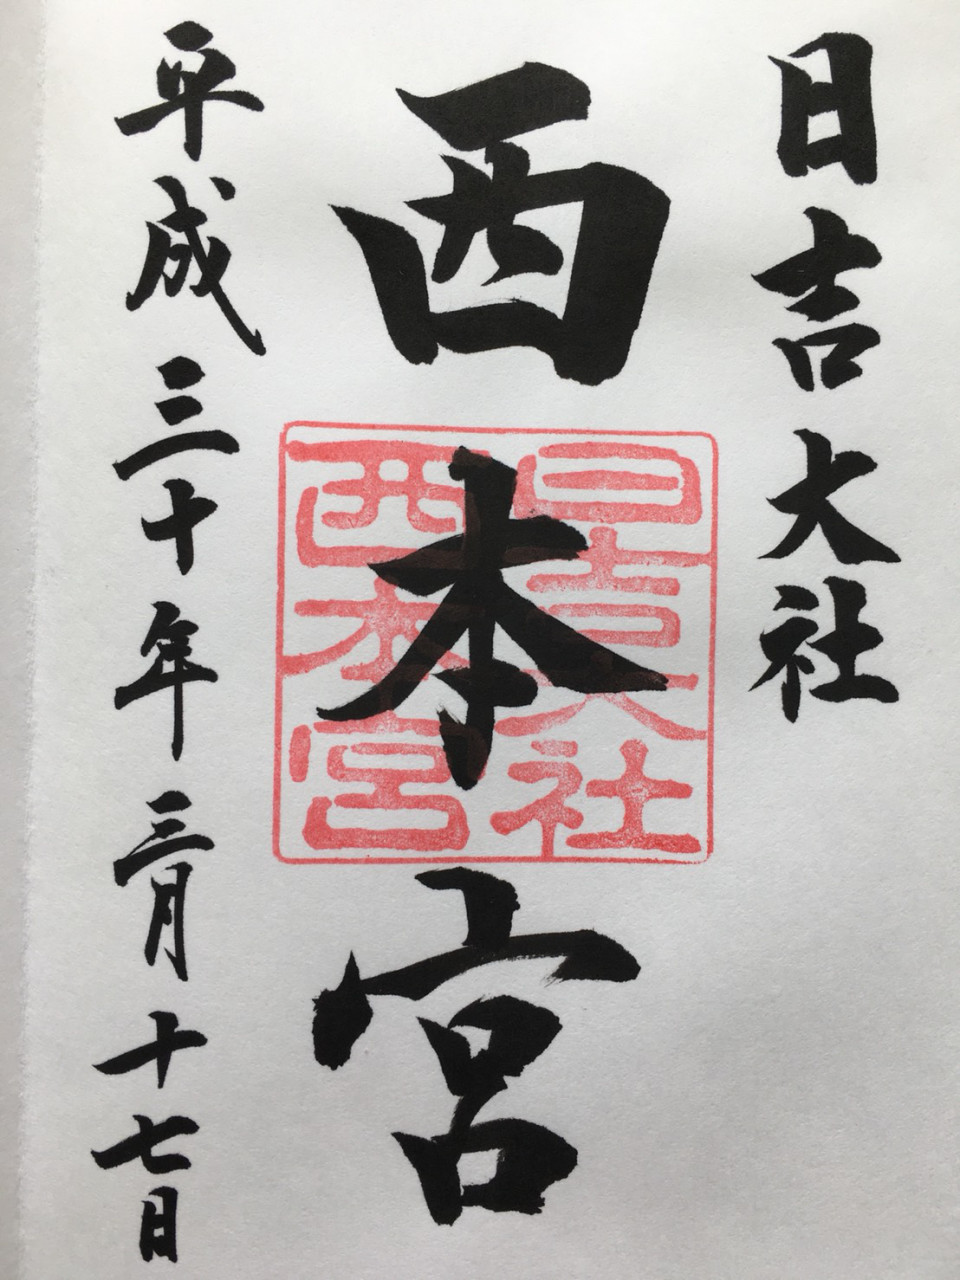 日吉大社
西本宮
日吉大社
西本宮
平成三十年三月十七日